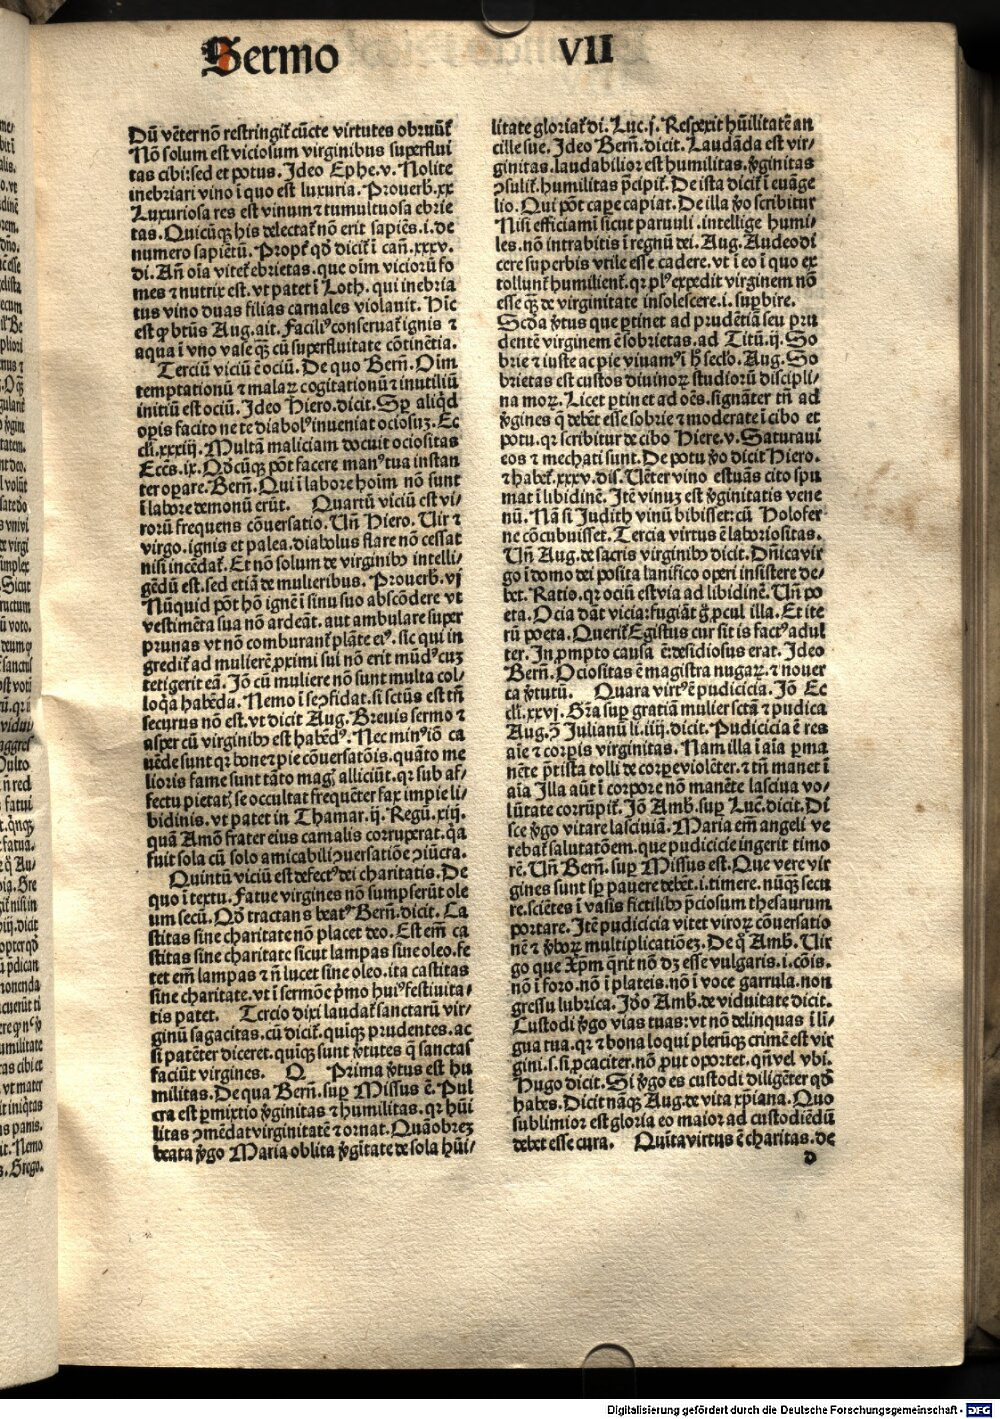 Sermo VII
Dū vēter nō restringit᷑ cūcte virtutes obruūt᷑
Nō solum est viciosum virginibus superflui
tas cibi: sed et potus. Ideo Ephe. v. Nolite
inebriari vino ī quo est luxuria. Prouerb. xx
Luxuriosa res est vinum ⁊ tumultuosa ebrie
tas. Quicūqꝫ his delectat᷑ nō erit sapiēs. i. de
numero sapiētū. Propt̄ qd̄ dicit᷑ ī cañ. xxxv.
di. Añ oīa vitet᷑ ebrietas. que oīm viciorū fo
mes ⁊ nutrix est. vt patet ī Loth. qui inebria
tus vino duas filias carnales violauit. Hic
est ꝙ btūs Aug. ait. Faciliꝰ conseruat᷑ ignis ⁊
aqua ī vno vase qꝫ̄ cū superfluitate cōtinētia.
Terciū viciū ē ociū. De quo Berñ. Oīm
temptationū ⁊ malaꝝ cogitationū ⁊ inutiliū
initiū est ociū. Ideo Hiero. dicit. Sp̄ aliqd̄
oꝑis facito ne te diabolꝰ inueniat ociosuꝫ. Ec
clī. xxxiij. Multā maliciam docuit ociositas
Eccs̄. ix. Qd̄cūqꝫ pōt facere manꝰ tua instan
ter oꝑare. Berñ. Qui ī labore hoīm nō sunt
ī labore demonū erūt. Quartū viciū est vi⸗
rorū frequens cōuersatio. Uñ Hiero. Uir ⁊
virgo. ignis et palea. diabolus flare nō cessat
nisi incēdat᷑. Et nō solum de virginibꝰ intelli⸗
gēdū est. sed etiā de mulieribus. Prouerb. vj
Nūquid pōt hō ignē ī sinu suo abscōdere vt
vestimēta sua nō ardeāt. aut ambulare super
prunas vt nō comburant᷑ plāte eiꝰ. sic qui in
gredit᷑ ad mulierē ꝓximi sui nō erit mūdꝰ cuꝫ
tetigerit eā. Iō cū muliere nō sunt multa col⸗
loq̄a habēda. Nemo ī se ꝯfidat. si sctūs est tñ
securus nō est. vt dicit Aug. Breuis sermo ⁊
asper cū virginibꝰ est habēdꝰ. Nec minꝰ iō ca
uēde sunt qꝛ bone ⁊ pie cōuersatōis. quāto me
lioris fame sunt tāto magꝭ alliciūt. qꝛ sub af⸗
fectu pietatꝭ se occultat frequēter fax impie li⸗
bidinis. vt patet in Thamar. ij. Regū. xiij.
quā Amō frater eius carnalis corruperat. q̄a
fuit sola cū solo amicabili ꝯuersatiōe ꝯiūcta.
Quintū viciū est defectꝰ dei charitatis. De
quo ī textu. Fatue virgines nō sumpserūt ole
um secū. Qd̄ tractans beatꝰ Berñ. dicit. Ca
stitas sine charitate nō placet deo. Est em̄ ca
stitas sine charitate sicut lampas sine oleo. fe
tet em̄ lampas ⁊ ñ lucet sine oleo. ita castitas
sine charitate. vt ī sermōe p̄mo huiꝰ festiuita⸗
tis patet. Tercio dixi laudat᷑ sanctarū vir⸗
ginū sagacitas. cū dicit᷑. quīqꝫ prudentes. ac
si patēter diceret. quīqꝫ sunt v̄tutes q̄ sanctas
faciūt virgines. Q Prima v̄tus est hu
militas. De qua Berñ. sup̄ Missus ē. Pul
cra est ꝑmixtio v̄ginitas ⁊ humilitas. qꝛ hūi
litas ꝯmēdat virginitatē ⁊ ornat. Quāobreꝫ
beata v̄go Maria oblita v̄gītate de sola hūi⸗
litate gloriat᷑ di. Luc. j. Respexit hūilitatē an
cille sue. Ideo Berñ. dicit. Laudāda est vir⸗
ginitas. laudabilior est humilitas. v̄ginitas
ꝯsulit᷑. humilitas p̄cipit᷑. De ista dicit᷑ ī euāge
lio. Qui pōt capere capiat. De illa v̄o scribitur
Nisi efficiamī sicut paruuli. intellige humi⸗
les. nō intrabitis ī regnū dei. Aug. Audeo di
cere superbis vtile esse cadere. vt ī eo ī quo ex
tollunt᷑ humilient᷑. qꝛ plꝰ expedit virginem nō
esse qꝫ̄ de virginitate insolescere. i. suꝑbire.
Scd̄a v̄tus que ꝑtinet ad prudētiā seu pru
dentē virginem ē sobrietas. ad Titū. ij. So
brie ⁊ iuste ac pie viuamꝰ ī h̄ secl̄o. Aug. So
brietas est custos diuinoꝝ studiorū discipli⸗
na moꝝ. Licet ꝑtinet ad oēs. signāter tñ ad
v̄gines q̄ debēt esse sobrie ⁊ moderate ī cibo et
potu. qꝛ scribitur de cibo Hiere. v. Saturaui
eos ⁊ mechati sunt. De potu v̄o dicit Hiero.
⁊ habet᷑. xxxv. dis. Uēter vino estuās cito spu
mat ī libidinē. Itē vinuꝫ est v̄ginitatis vene
nū. Nā si Judith vinū bibisset: cū Holofer
ne cōcubuisset. Tercia virtus ē laboriositas.
Uñ Aug. de sacris virginibꝰ dicit. Dñica vir
go ī domo dei posita lanifico operi insistere de⸗
bet. Ratio. qꝛ ociū est via ad libidinē. Uñ po
eta. Ocia dāt vicia: fugiāt g̊ ꝓcul illa. Et ite
rū poeta. Querit᷑ Egistus cur sit is factꝰ adul
ter. In promptu causa ē: desidiosus erat. Ideo
Berñ. Ociositas ē magistra nugaꝝ. ⁊ nouer
ca v̄tutū. Quara virtꝰ ē pudicicia. Iō Ec
clī. xxvj. Gr̄a suꝑ gratiā mulier sctā ⁊ pudica
Aug. ꝯ̄ Julianū li. iiij. dicit. Pudicicia ē res
aīe ⁊ corꝑis virginitas. Nam illa ī aīa ꝑma
nēte p̄t ista tolli de corpe violēter. ⁊ tñ manet ī
aīa Illa aūt ī corpore nō manēte lasciua vo⸗
lūtate corrūpit᷑. Iō Amb. suꝑ Luc̄. dicit. Di
sce v̄go vitare lasciuiā. Maria em̄ angeli ve
rebat᷑ salutatōem. que pudicicie ingerit timo
rē. Uñ Berñ. suꝑ Missus est. Que vere vir
gines sunt sp̄ pauere debēt. i. timere. nūqꝫ̄ secu
re. sciētes ī vasis fictilibꝰ p̄ciosum thesaurum
portare. Itē pudicicia vitet viroꝝ cōuersatio
nē ⁊ v̄boꝝ multiplicatiōeꝫ. De q̊ Amb. Uir
go que Xp̄m q̄rit nō dꝫ esse vulgaris. i. cōis.
nō ī foro. nō ī plateis. nō ī voce garrula. non
gressu lubrica. Idō Amb. de viduitate dicit.
Custodi v̄go vias tuas: vt nō delinquas ī li⸗
gua tua. qꝛ ⁊ bona loqui plerūqꝫ crimē est vir
gini. s. si ꝓcaciter. nō prout oportet. qñ vel vbi.
Hugo dicit. Si v̄go es custodi diligēter qd̄
habes. Dicit nāqꝫ Aug. de vita xp̄iana. Quo
sublimior est gloria eo maior ad custodiēdū
debet esse cura. Quīta virtus ē charitas. de
d
Digitalisierung gefördert durch die Deutsche Forschungsgemeinschaft - DFG